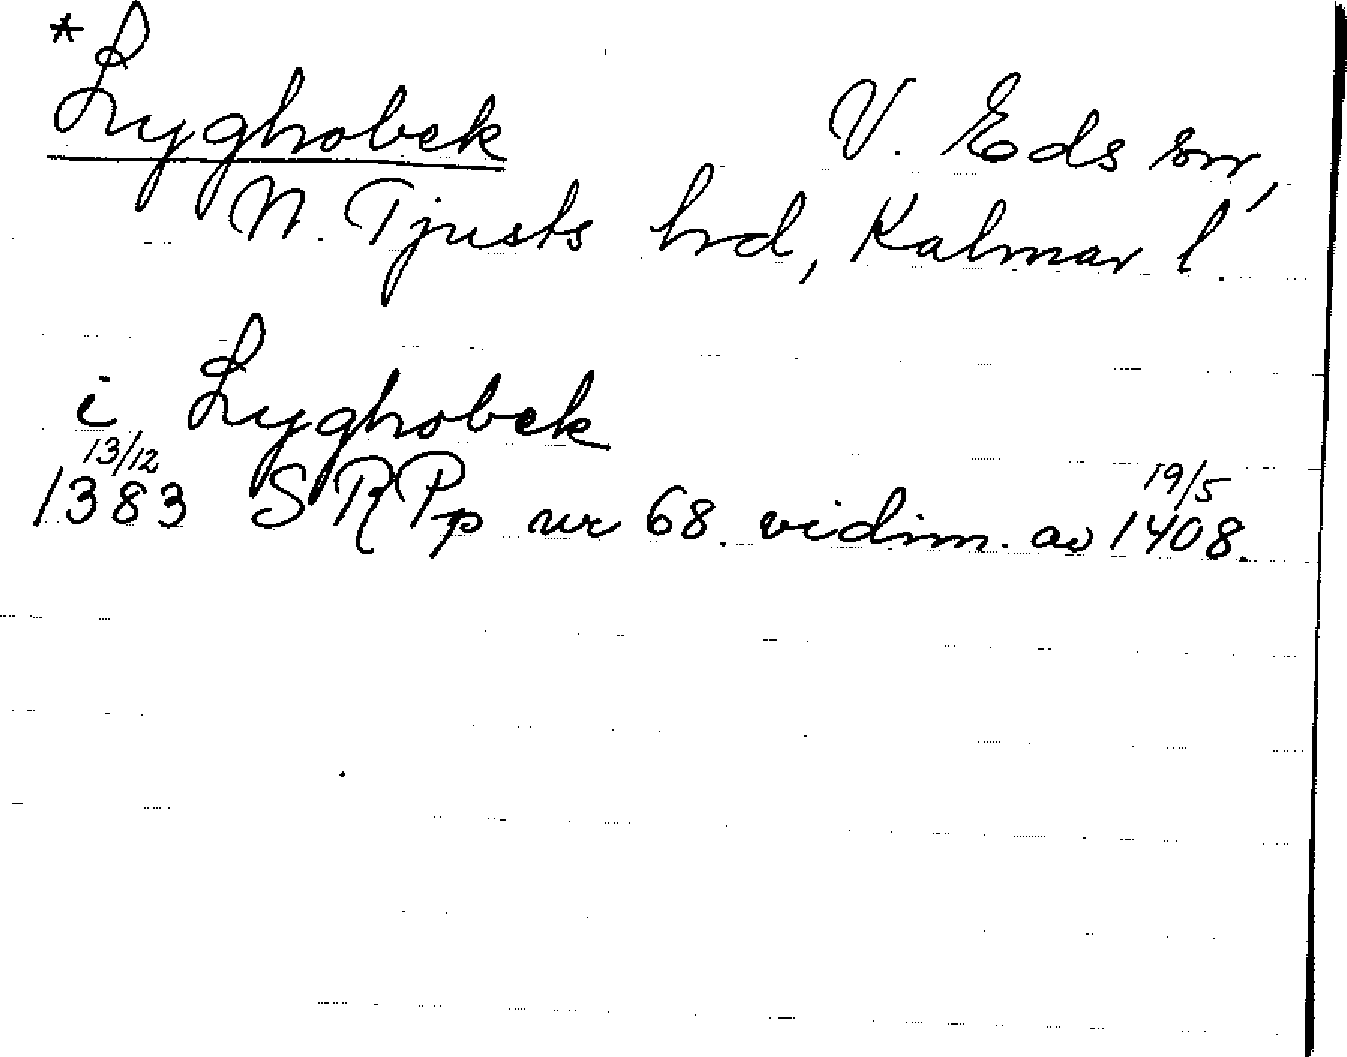 *Lyghobek V. Eds sn,
N. Tjusts hrd, Kalmar l.
i Lyghobek
13/12 19/5
1383 SRPp nr 68. vidim. av 1408.